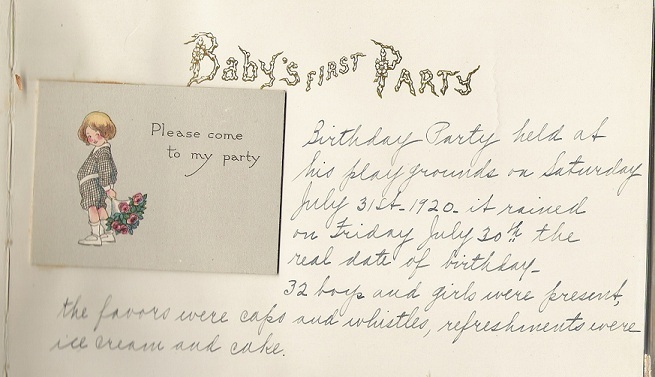 Baby's First Party
Please come
to my party
Birthday Party held at
his playgrounds on Saturday
July 31st-1920- it rained
on Friday July 30th the
real date of birthday-
32 boys and girls were present,
the favors were caps and whistles, refreshments were
ice cream and cake.